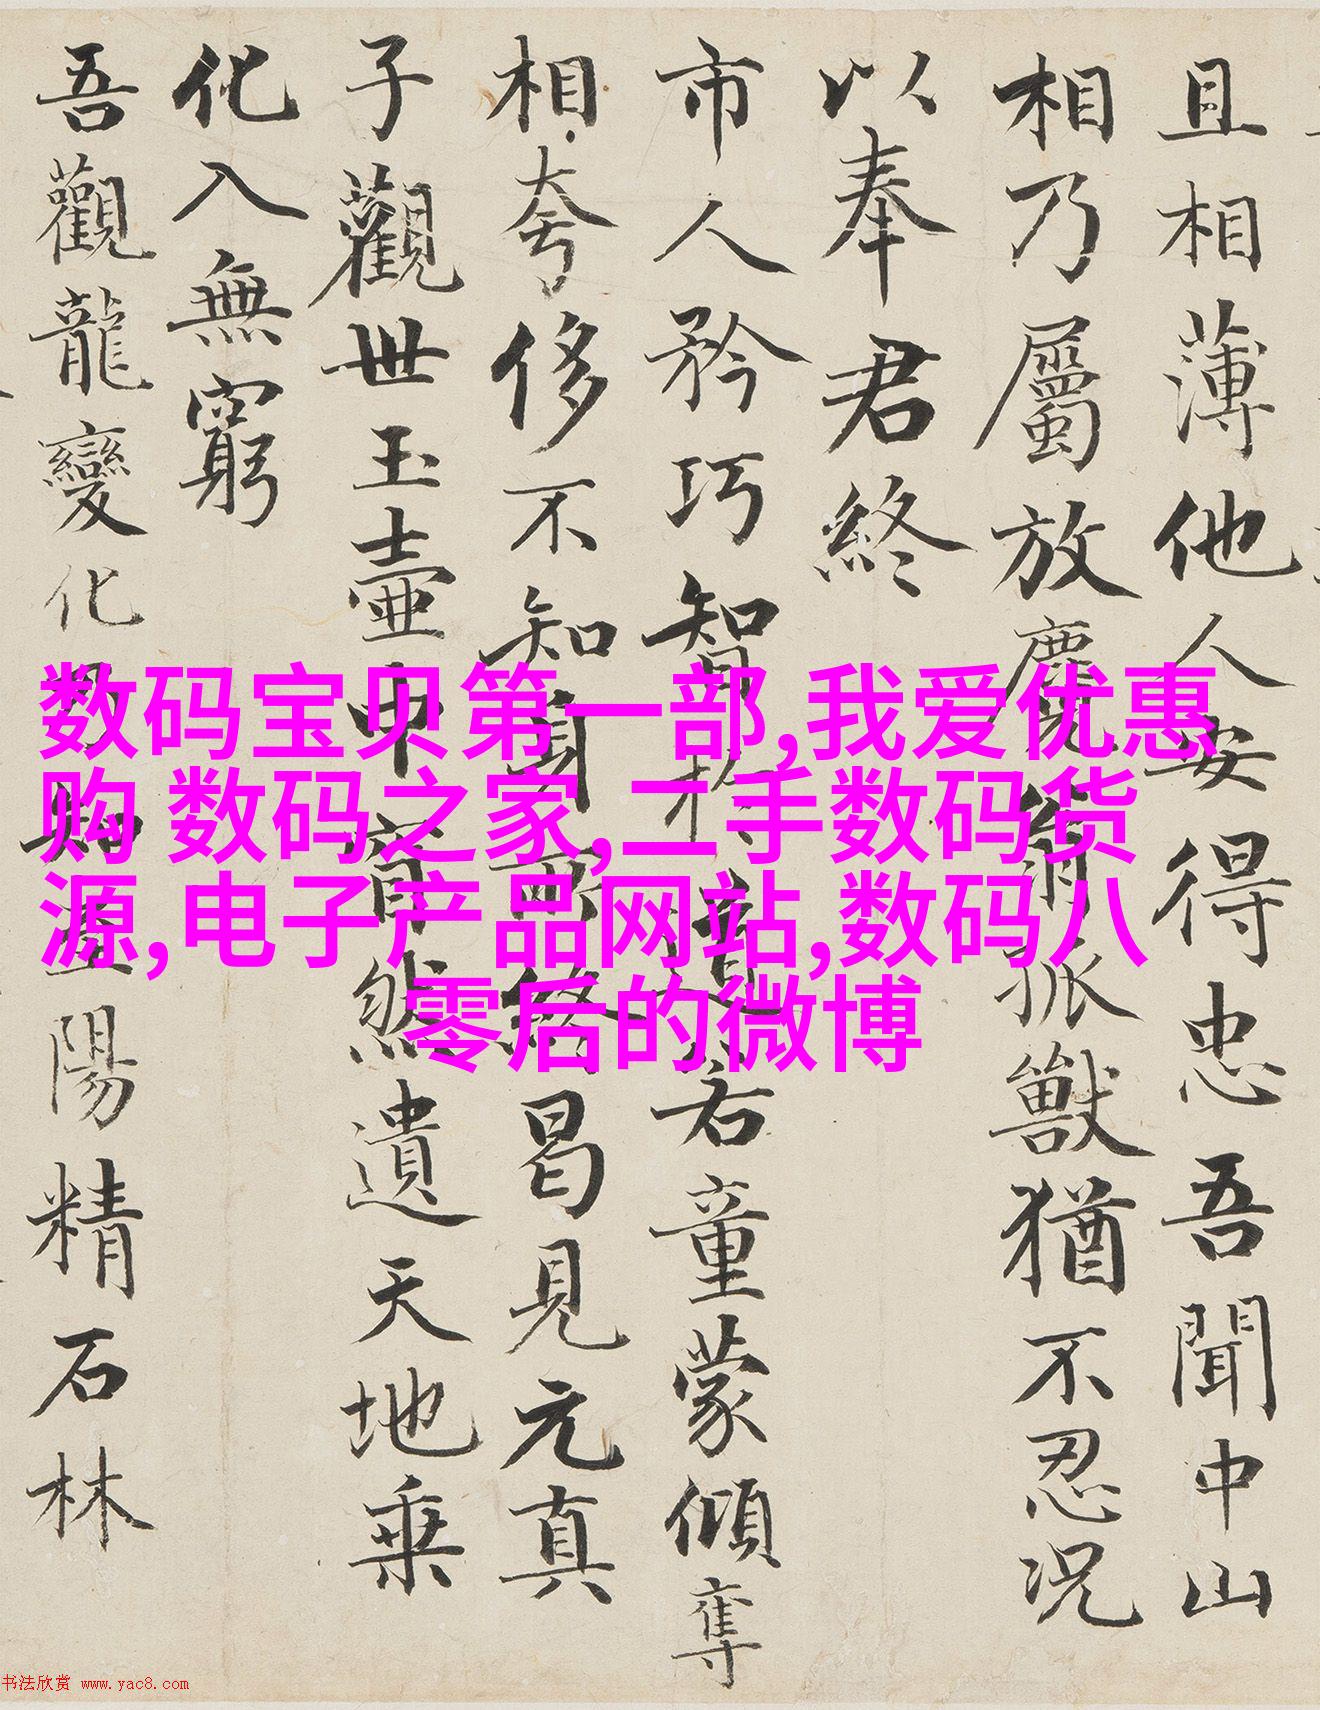 且相薄他人安得忠吾聞中山
相乃屬放麑翁孤獸猶不忍況
以奉君終
市人矜巧智於道若童蒙傾奪
相夸侈不知身所終曷見元真
子觀世玉壺中窅然遺天地乘
化入無窮
吾觀龍變化乃知至陽精石林
数码宝贝第一部,我爱优惠
购 数码之家,二手数码货
源,电子产品网站,数码八
零后的微博
书法欣赏 www.yac8.com